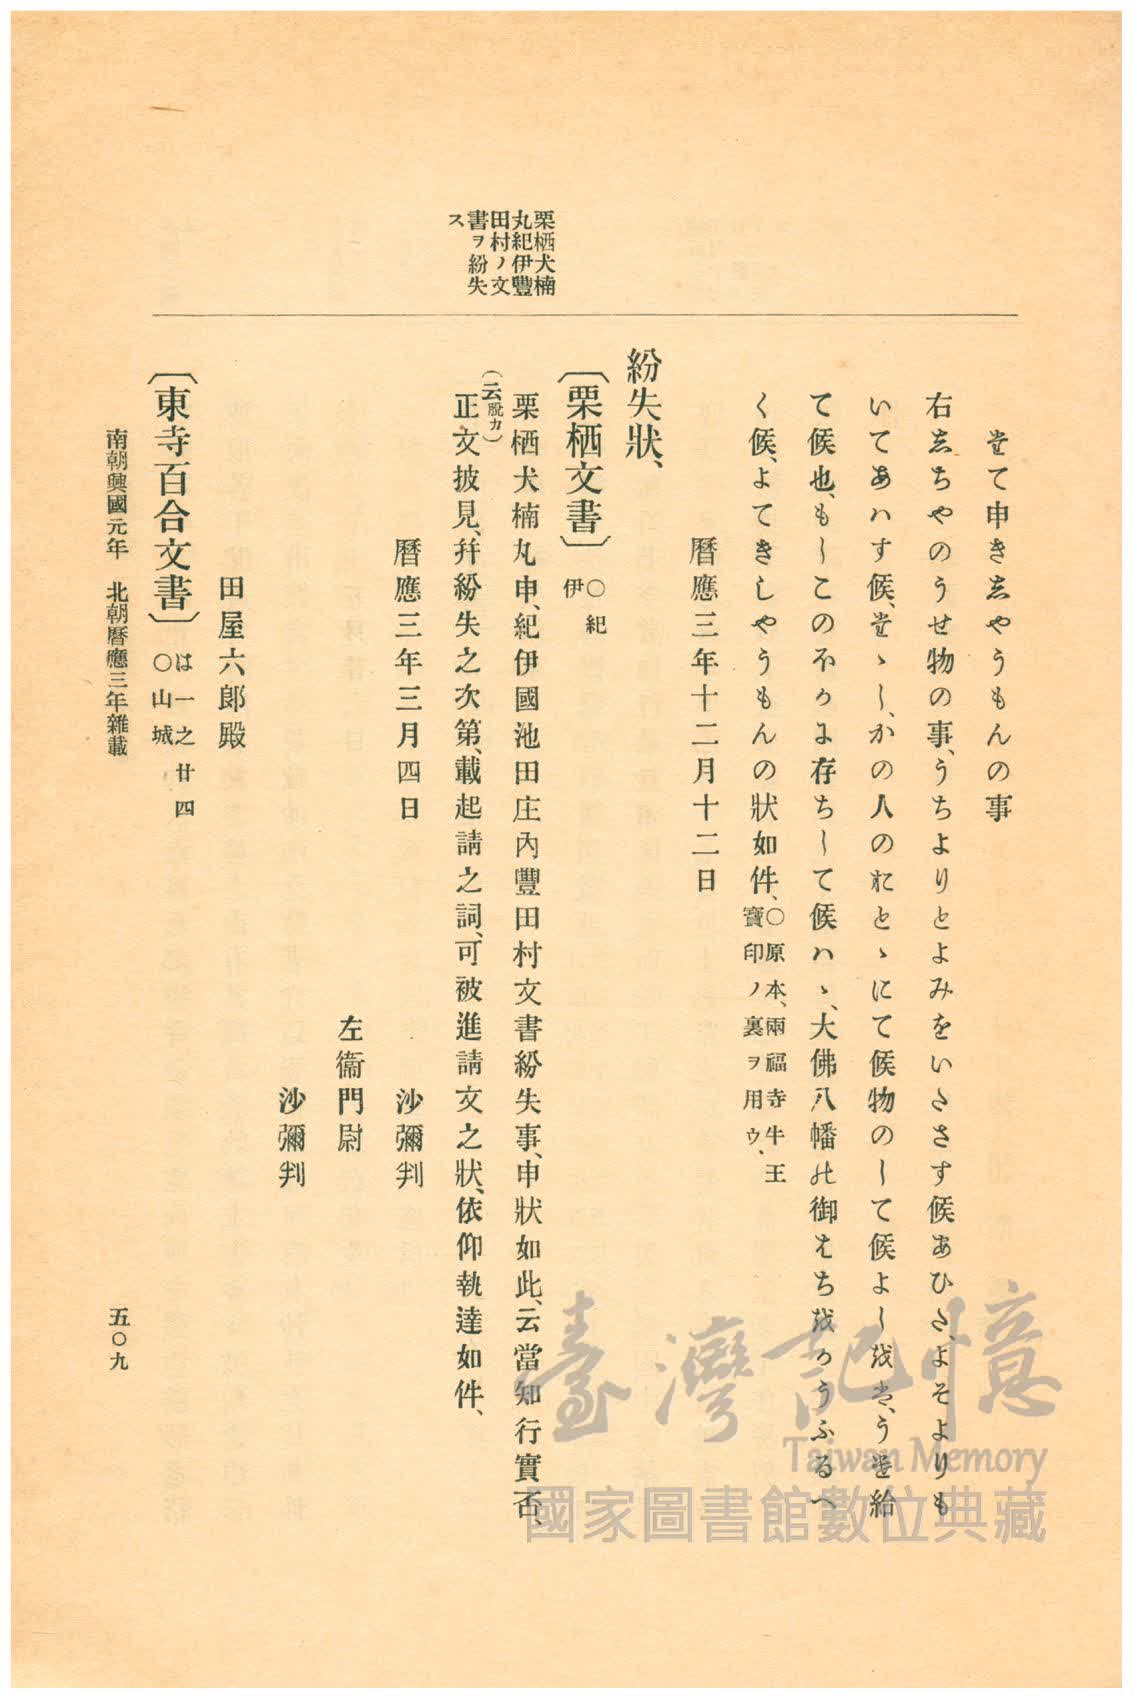 栗栖犬楠
丸紀伊豐
田村ノ文
書ヲ紛失
ス
堂て申きゑやうもんの事
右ゑちやのうせ物の事、うちよりとよみをいさゝす候あひさ、よそよりも
いてあハす候、堂ゝし、かの人のおとゝにて候物のして候よし越ハ、うけ給
て候也、もしこの不りよ存ちして候ハゝ、大佛八幡の御はち越りうふるへ
く候、よてきしやうもんの狀如件、○原本、兩福寺牛王
寶印ノ裏ヲ用ウ、
曆應三年十二月十二日
紛失狀、
〔栗栖文書〕○紀
伊
栗栖犬楠丸申、紀伊國池田庄內豐田村文書紛失事、申狀如此、云當知行實否、
(云脫カ)
正文披見、幷紛失之次第、載起請之詞、可被進請文之狀、依仰執達如件、
曆應三年三月四日 沙彌判
左衞門尉
沙彌判
田屋六郎殿
〔東寺百合文書〕は一之廿四
○山城
南朝興國元年 北朝曆應三年雜載 五〇九
臺灣記憶
Taiwan Memory
國家圖書館數位典藏